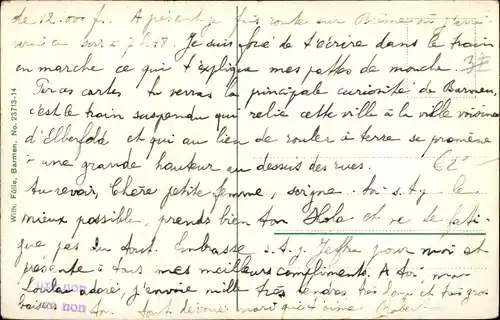 de 12.000 f. A présent je fais route sur Brême où j'arri
verai ce soir à 7 h 58. Je suis forcé de t'écrire dans le train
en marche ce qui t'explique mes pattes de mouche.
cartes tu verras la principale curiosité de Barmen,
c'est le train suspendu qui relie cette ville à la ville voisine
d'Elberfeld et qui au lieu de rouler à terre se promène
à une grande hauteur au dessus des rues.
€2⁰⁰
Au revoir, Chère petite femme, soigne toi s.t.p. le
mieux possible, prends bien ton Kola et ne te fati-
gue pas du tout. Embrasse s.t.p. pour moi et
présente à tous mes meilleurs compliments. A toi mon
Loulou adoré, j'envoie mille très tendres très doux et très gros
baisers Ton tout dévoué mari qui t'aime Robert
non
non
Wilh. Fülle, Barmen, No. 23713-14